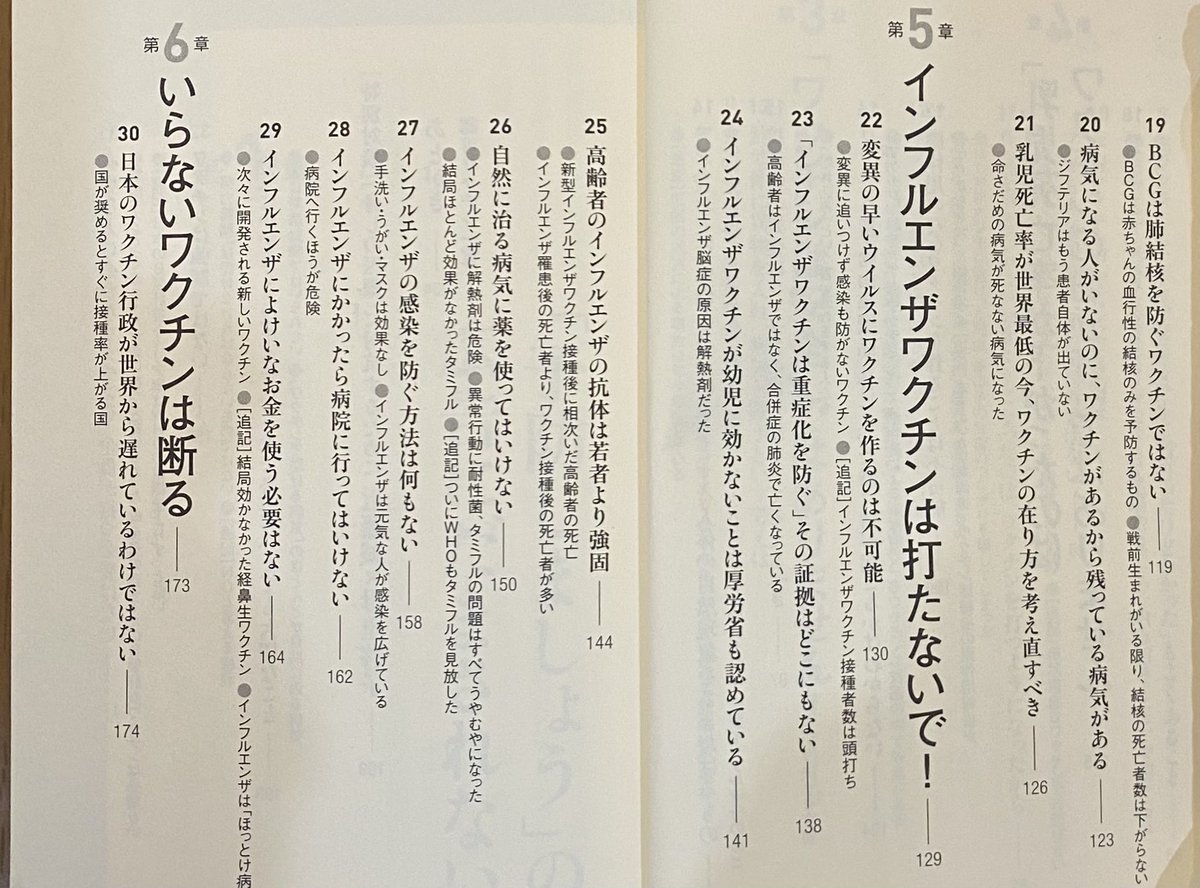 19 BCGは肺結核を防ぐワクチンではない 119
●BCGは赤ちゃんの血行性の結核のみを予防するもの ●戦前生まれがいる限り、結核の死亡者数は下がらない
20 病気になる人がいないのに、ワクチンがあるから残っている病気がある 123
●ジフテリアはもう患者自体が出ていない
21 乳児死亡率が世界最低の今、ワクチンの在り方を考え直すべき 126
●命さだめの病気が死なない病気になった
第5章 インフルエンザワクチンは打たないで! 129
22 変異の早いウイルスにワクチンを作るのは不可能 130
●変異に追いつけず感染も防がないワクチン ●[追記]インフルエンザワクチン接種者数は頭打ち
23 「インフルエンザワクチンは重症化を防ぐ」その証拠はどこにもない 138
●高齢者はインフルエンザではなく、合併症の肺炎で亡くなっている
24 インフルエンザワクチンが幼児に効かないことは厚労省も認めている 141
●インフルエンザ脳症の原因は解熱剤だった
25 高齢者のインフルエンザの抗体は若者より強固 144
●新型インフルエンザワクチン接種後に相次いだ高齢者の死亡
●インフルエンザ罹患後の死亡者より、ワクチン接種後の死亡者が多い
26 自然に治る病気に薬を使ってはいけない 150
●インフルエンザに解熱剤は危険 ●異常行動に耐性菌、タミフルの問題はすべてうやむやになった
●結局ほとんど効果がなかったタミフル ●[追記]ついにWHOもタミフルを見放した
27 インフルエンザの感染を防ぐ方法は何もない 158
●手洗い・うがい・マスクは効果なし ●インフルエンザは元気な人が感染を広げている
28 インフルエンザにかかったら病院に行ってはいけない 162
●病院へ行くほうが危険
29 インフルエンザによけいなお金を使う必要はない 164
●次々に開発される新しいワクチン ●[追記]結局効かなかった経鼻生ワクチン ●インフルエンザは「ほっとけ病
第6章 いらないワクチンは断る 173
30 日本のワクチン行政が世界から遅れているわけではない 174
●国が奨めるとすぐに接種率が上がる国